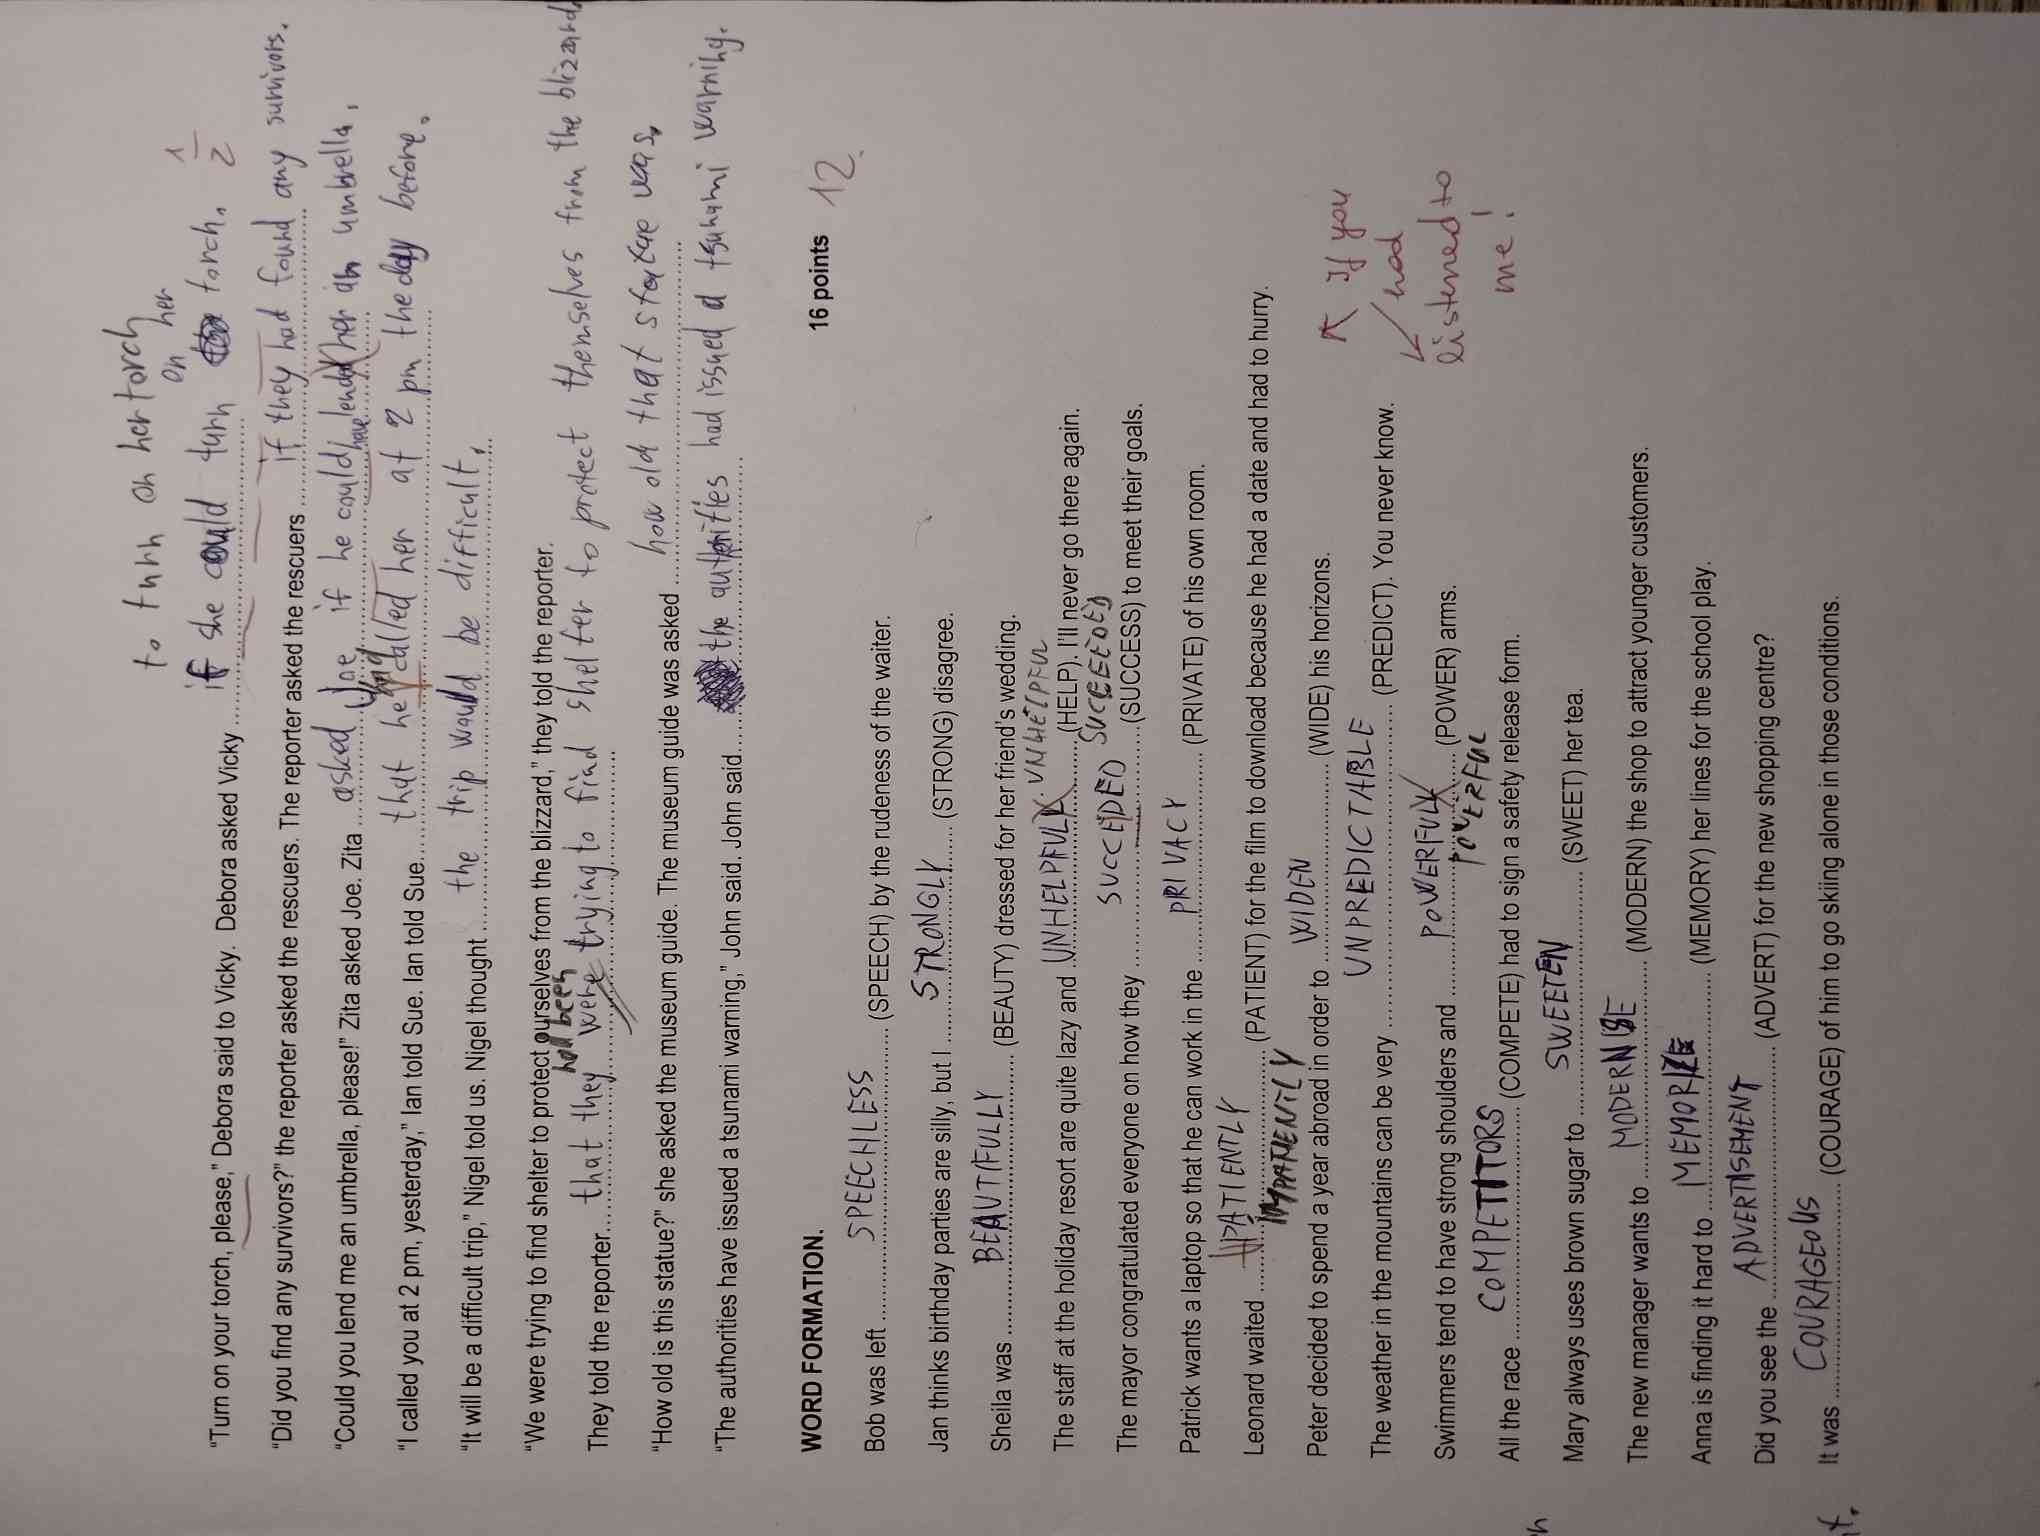 to turn on her torch
on her
"Turn on your torch, please," Debora said to Vicky. Debora asked Vicky if she could turn torch. 1/2
"Did you find any survivors?" the reporter asked the rescuers. The reporter asked the rescuers if they had found any survivors.
"Could you lend me an umbrella, please!" Zita asked Joe. Zita asked Joe if he could have lended her an umbrella.
had
"I called you at 2 pm, yesterday," Ian told Sue. Ian told Sue that he called her at 2 pm the day before.
"It will be a difficult trip," Nigel told us. Nigel thought the trip would be difficult.
"We were trying to find shelter to protect ourselves from the blizzard," they told the reporter.
had been
They told the reporter that they were trying to find shelter to protect themselves from the blizzard
"How old is this statue?" she asked the museum guide. The museum guide was asked how old that statue was.
"The authorities have issued a tsunami warning," John said. John said the authorities had issued a tsunami warning.
WORD FORMATION. 16 points 12
Bob was left SPEECHLESS (SPEECH) by the rudeness of the waiter.
Jan thinks birthday parties are silly, but I STRONGLY (STRONG) disagree.
Sheila was BEAUTIFULLY (BEAUTY) dressed for her friend's wedding.
UNHELPFUL
The staff at the holiday resort are quite lazy and UNHELPFULL (HELP). I'll never go there again.
SUCCEEDED
The mayor congratulated everyone on how they SUCCEDED (SUCCESS) to meet their goals.
Patrick wants a laptop so that he can work in the PRIVACY (PRIVATE) of his own room.
Leonard waited PATIENTLY (PATIENT) for the film to download because he had a date and had to hurry.
IMPATIENTLY
Peter decided to spend a year abroad in order to WIDEN (WIDE) his horizons.
If you
The weather in the mountains can be very UNPREDICTABLE (PREDICT). You never know.
had
Swimmers tend to have strong shoulders and POWERFULL (POWER) arms.
listened to
POWERFUL
me!
All the race COMPETITORS (COMPETE) had to sign a safety release form.
h
Mary always uses brown sugar to SWEETEN (SWEET) her tea.
The new manager wants to MODERNISE (MODERN) the shop to attract younger customers.
Anna is finding it hard to MEMORIZE (MEMORY) her lines for the school play.
Did you see the ADVERTISEMENT (ADVERT) for the new shopping centre?
It was COURAGEOUS (COURAGE) of him to go skiing alone in those conditions.